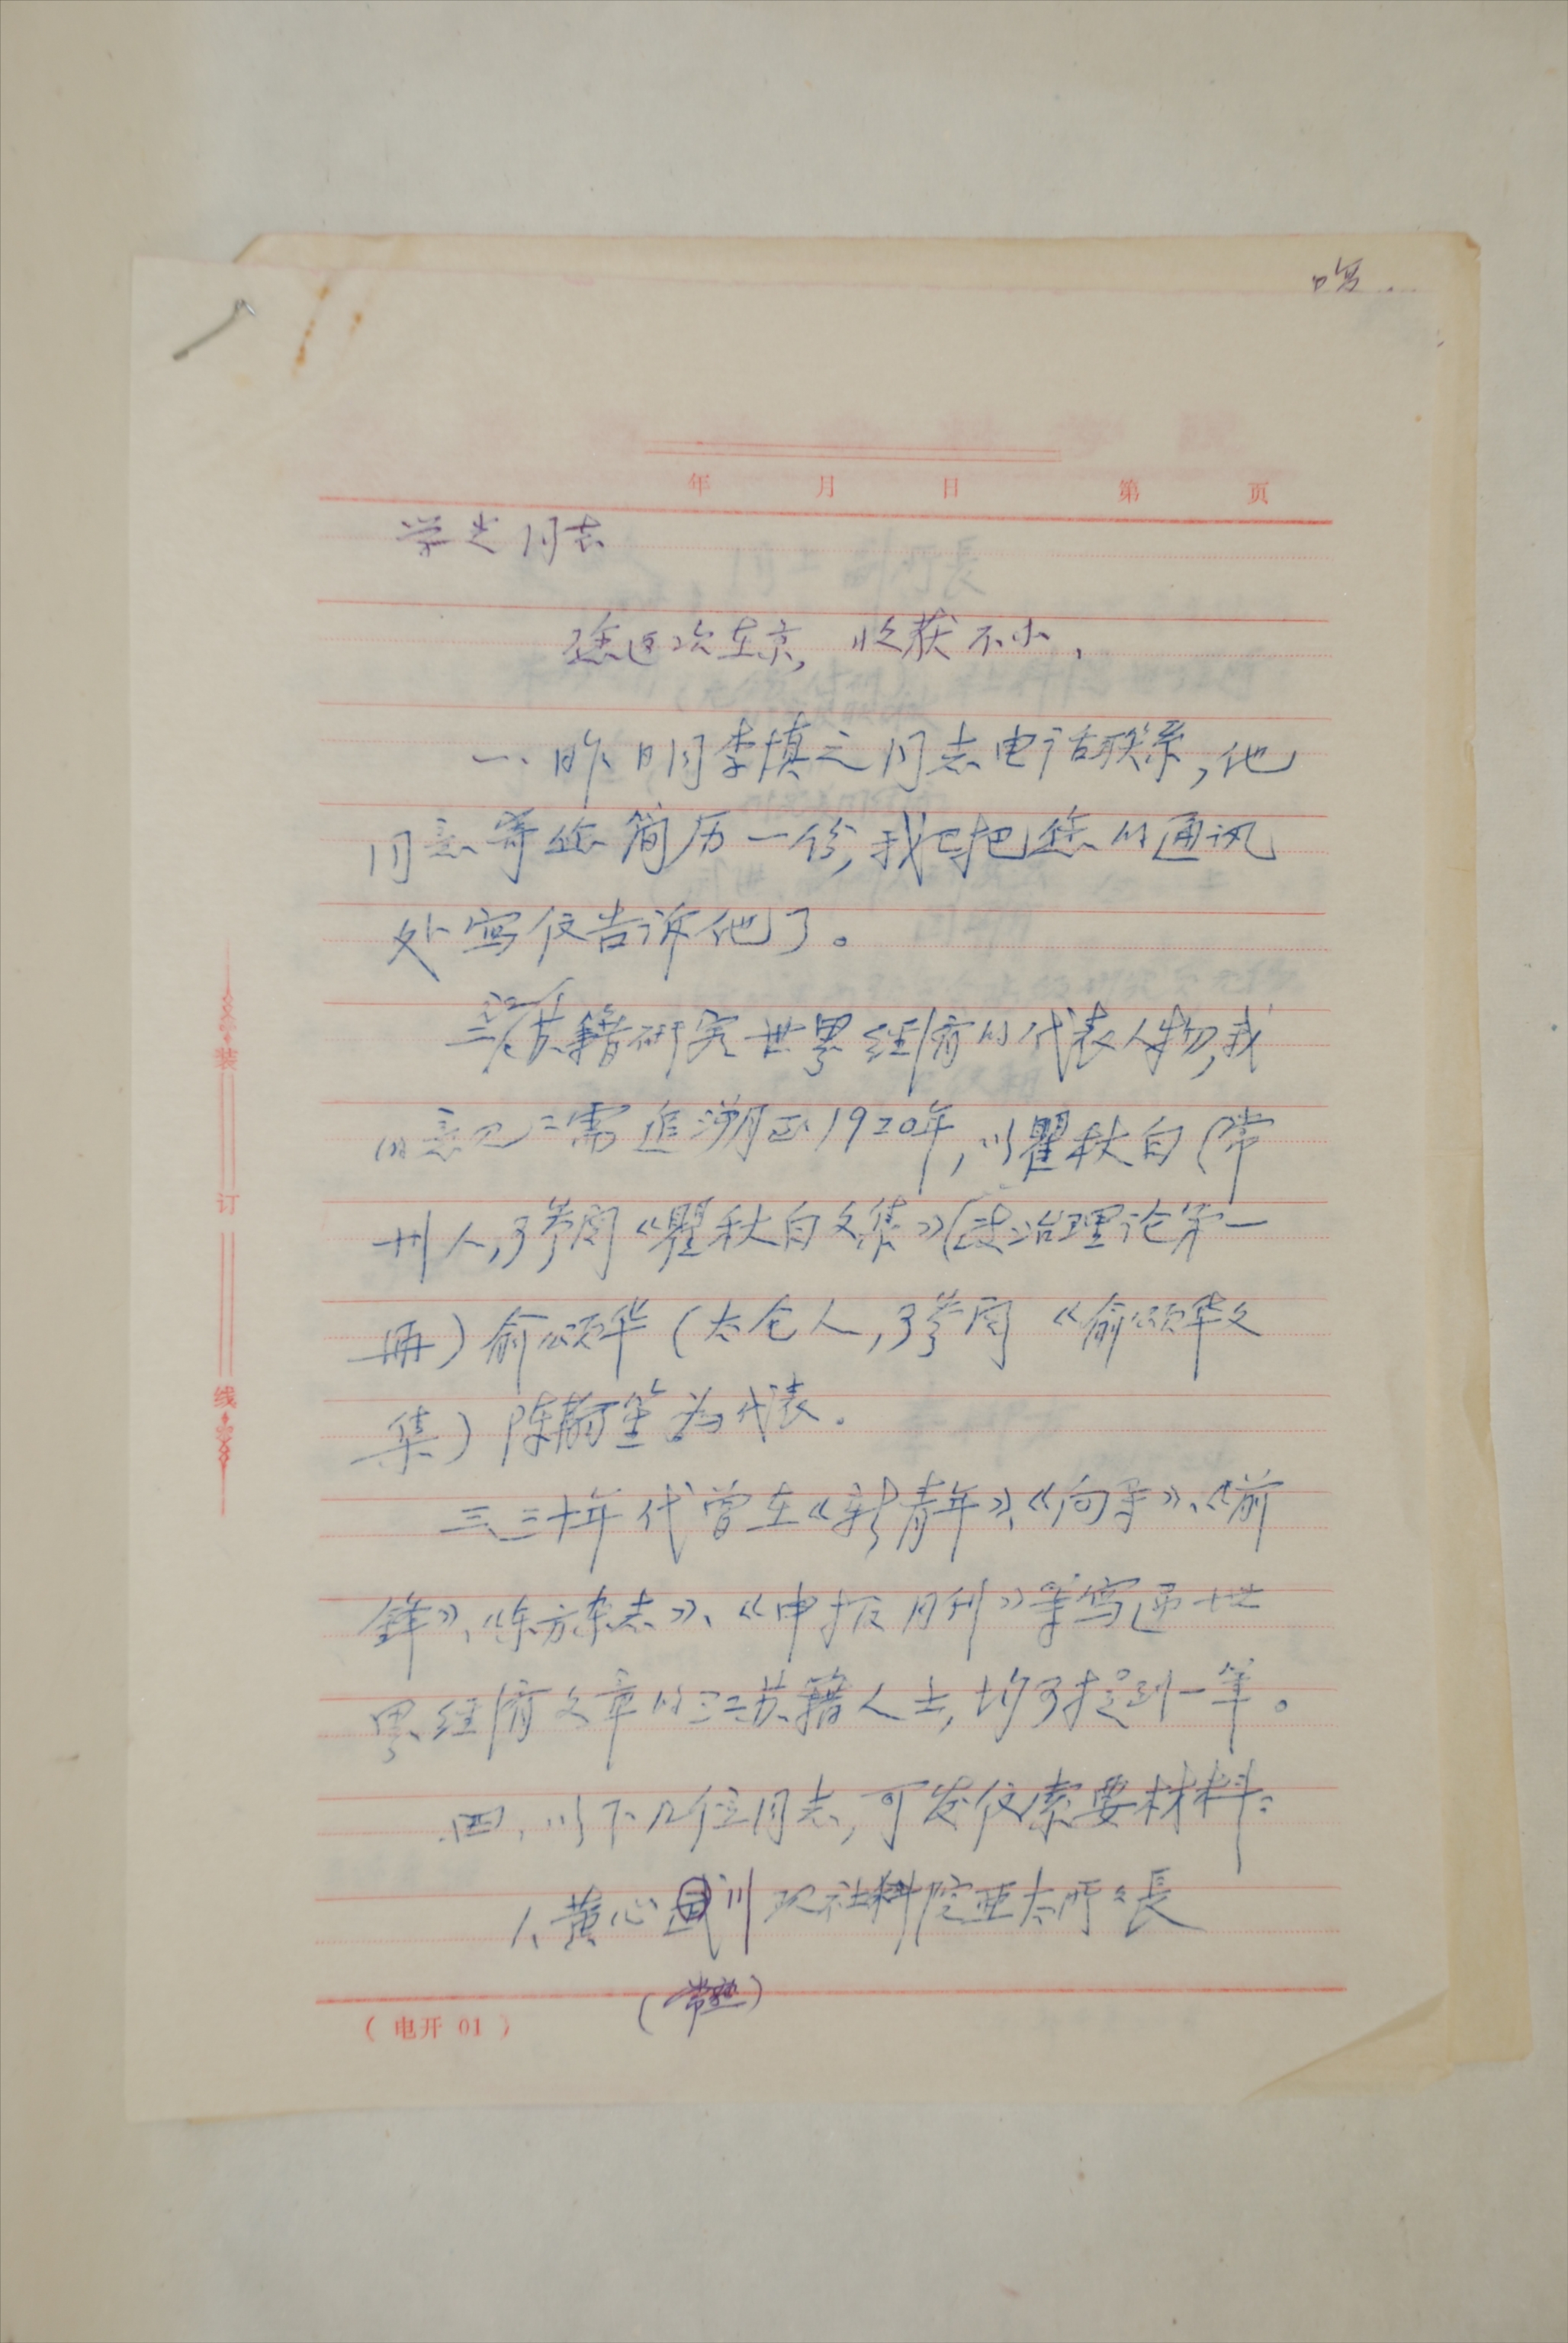 年 月 日 第 页
学芝同志
您这次在京,收获不小,
一、昨日同李慎之同志电话联系,他
同意寄您简历一份,我已把您的通讯
处写信告诉他了。
二、江苏籍研究世界经济的代表人物,我
的意见:需追溯到1920年,以瞿秋白(常
州人,可参阅《瞿秋白文集》(政治理论第一
册)俞颂华(太仓人,可参阅《俞颂华文
集)陈翰笙为代表。
三、三十年代曾在《新青年》、《向导》、《前
锋》、《东方杂志》、《申报月刊》等写过世
界经济文章的江苏籍人士,均可提到一笔。
四、以下几位同志,可发信索要材料:
1、黄心川 现社科院亚太所所长
(常熟)
(电开 01)
装
订
线